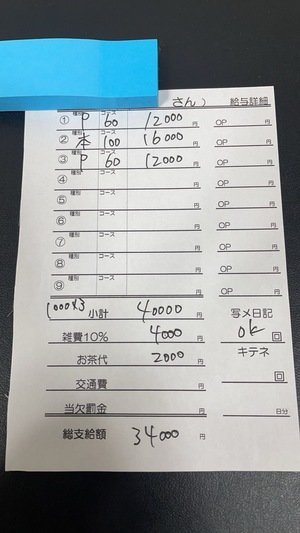 さん） 給与詳細
① 種別 P コース 60 12000 円 OP 円
② 種別 本 コース 100 16000 円 OP 円
③ 種別 P コース 60 12000 円 OP 円
④ 種別 コース 円 OP 円
⑤ 種別 コース 円 OP 円
⑥ 種別 コース 円 OP 円
⑦ 種別 コース 円 OP 円
⑧ 種別 コース 円 OP 円
⑨ 種別 コース 円 OP 円
1000×3 小計 40000 円 写メ日記
雑費10% 4000 円 ok 回
お茶代 2000 円 キテネ
交通費 円 回
当欠罰金 円 日分
総支給額 34000 円